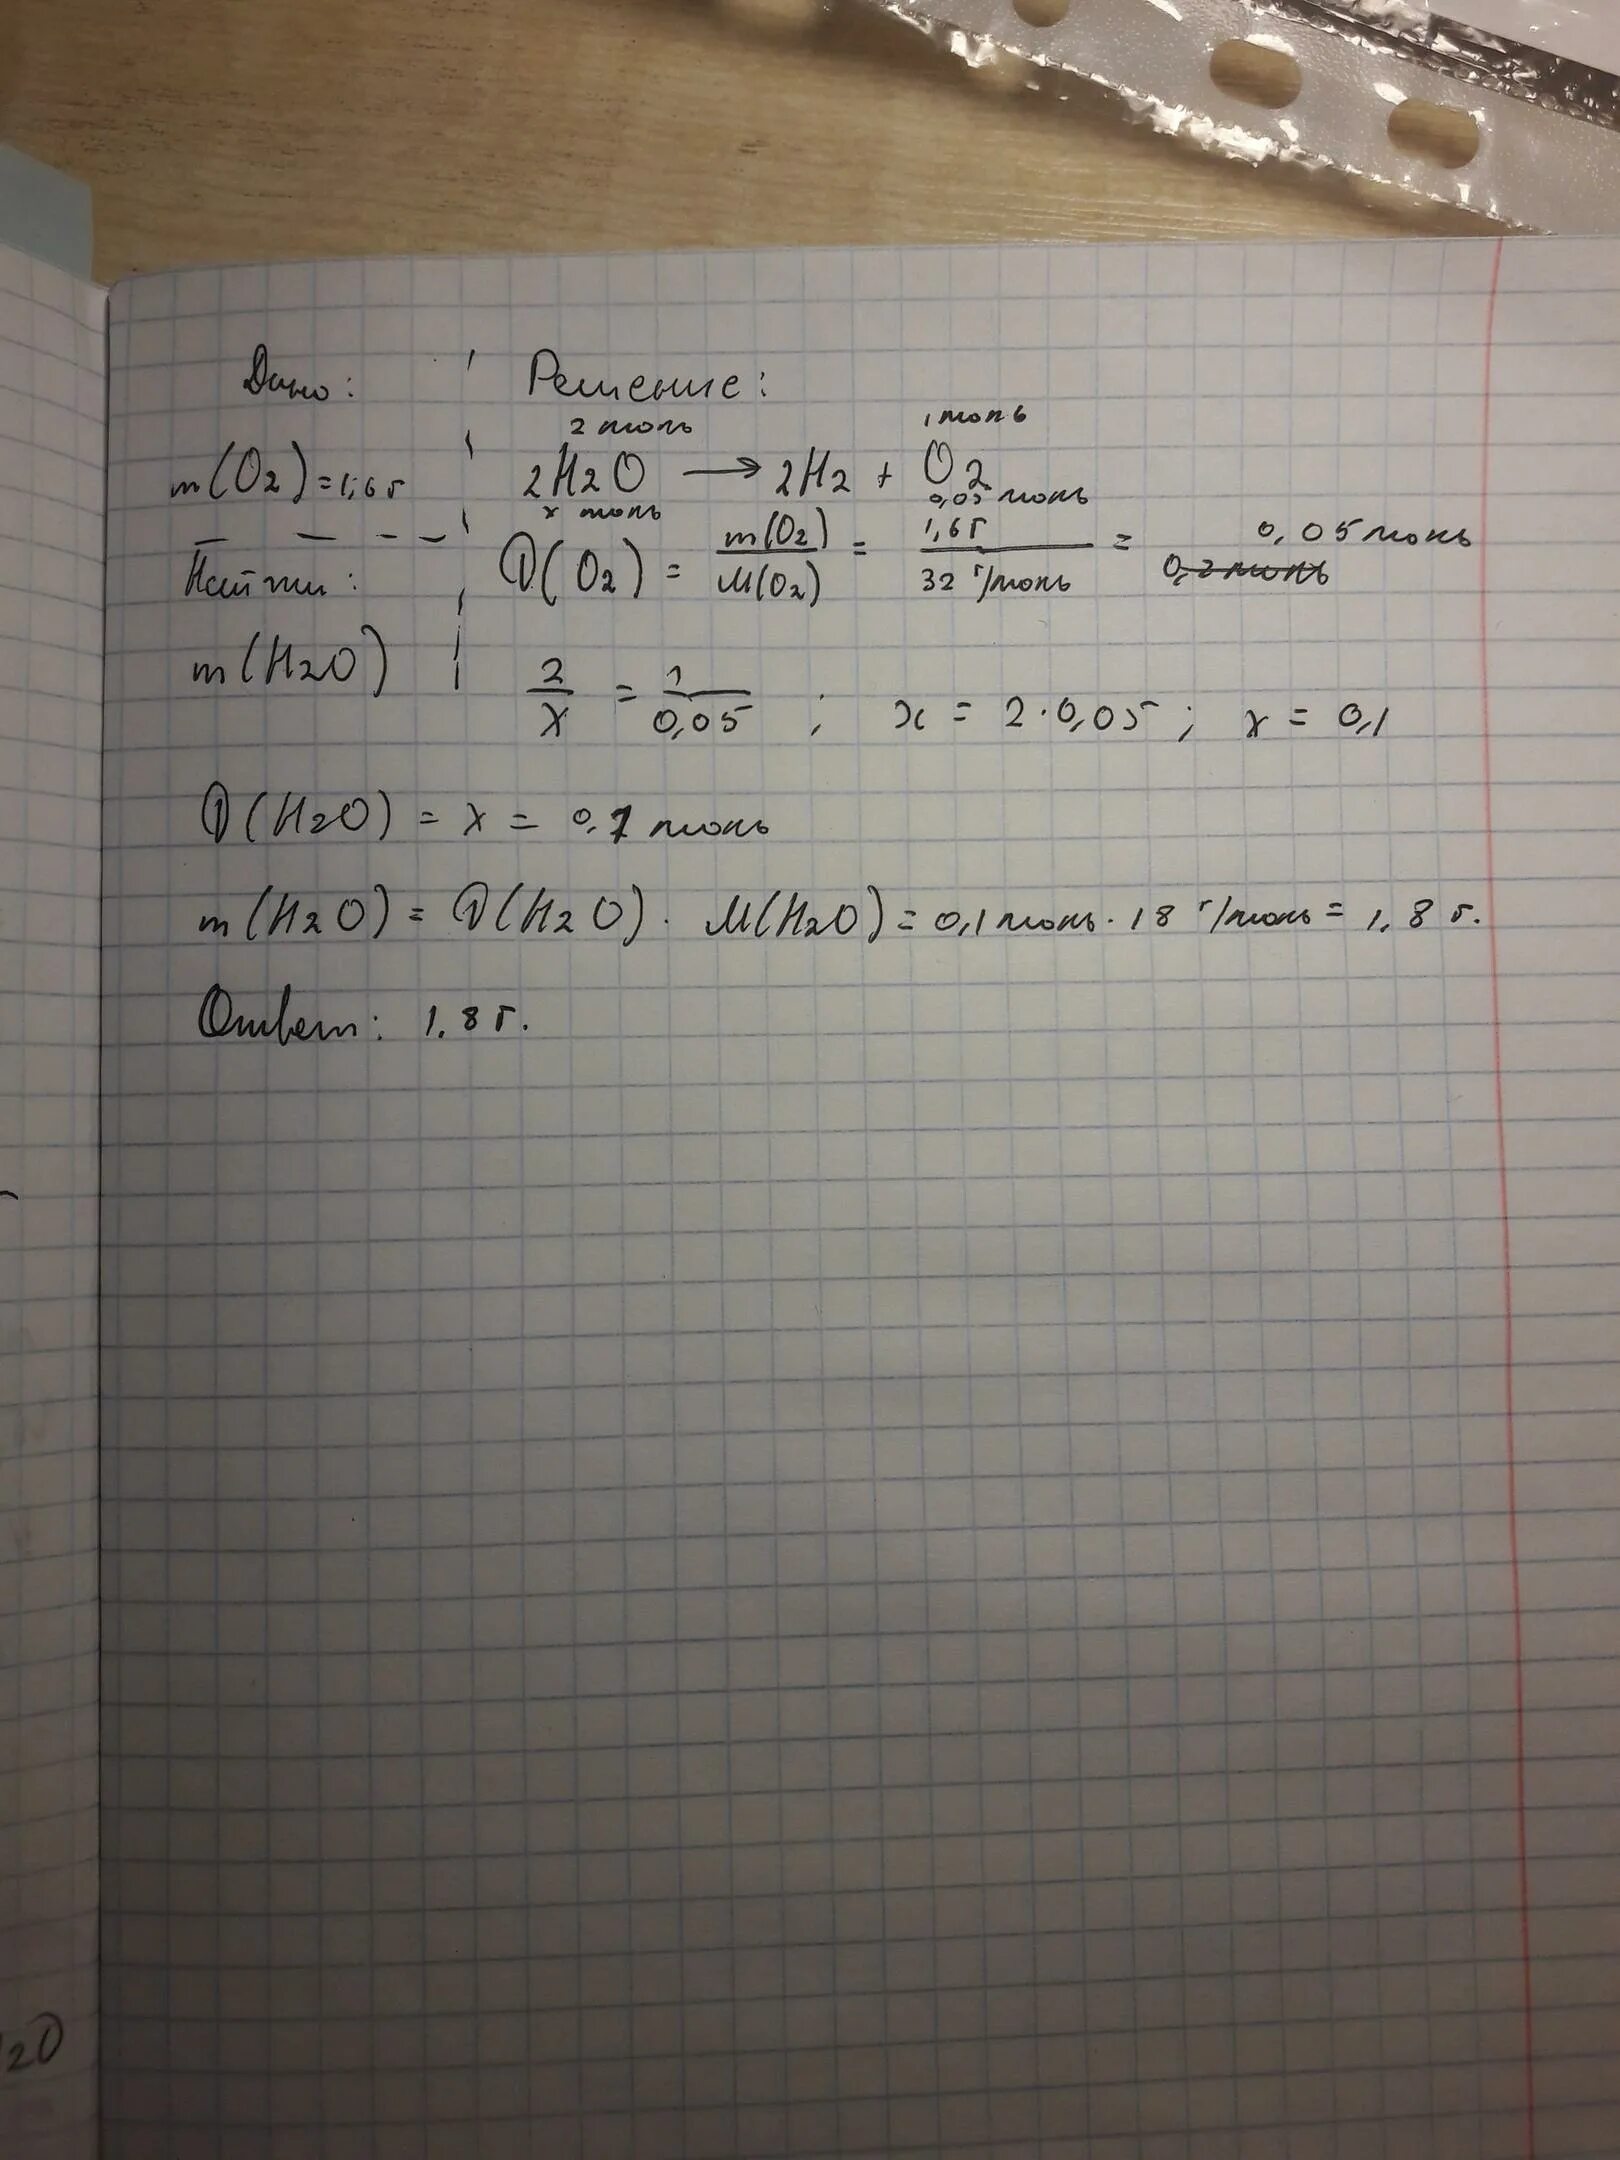 Дано:
m(O2)=1,6г
Найти:
m(H2O)
Решение:
2 моль 1 моль
2H2O → 2H2 + O2
x моль 0,05 моль
ν(O2) = m(O2)/M(O2) = 1,6г/32 г/моль = 0,05 моль
0,2 моль
2/x = 1/0,05 ; x = 2·0,05 ; x = 0,1
ν(H2O) = x = 0,1 моль
m(H2O) = ν(H2O) · M(H2O) = 0,1 моль · 18 г/моль = 1,8 г.
Ответ: 1,8 г.
20